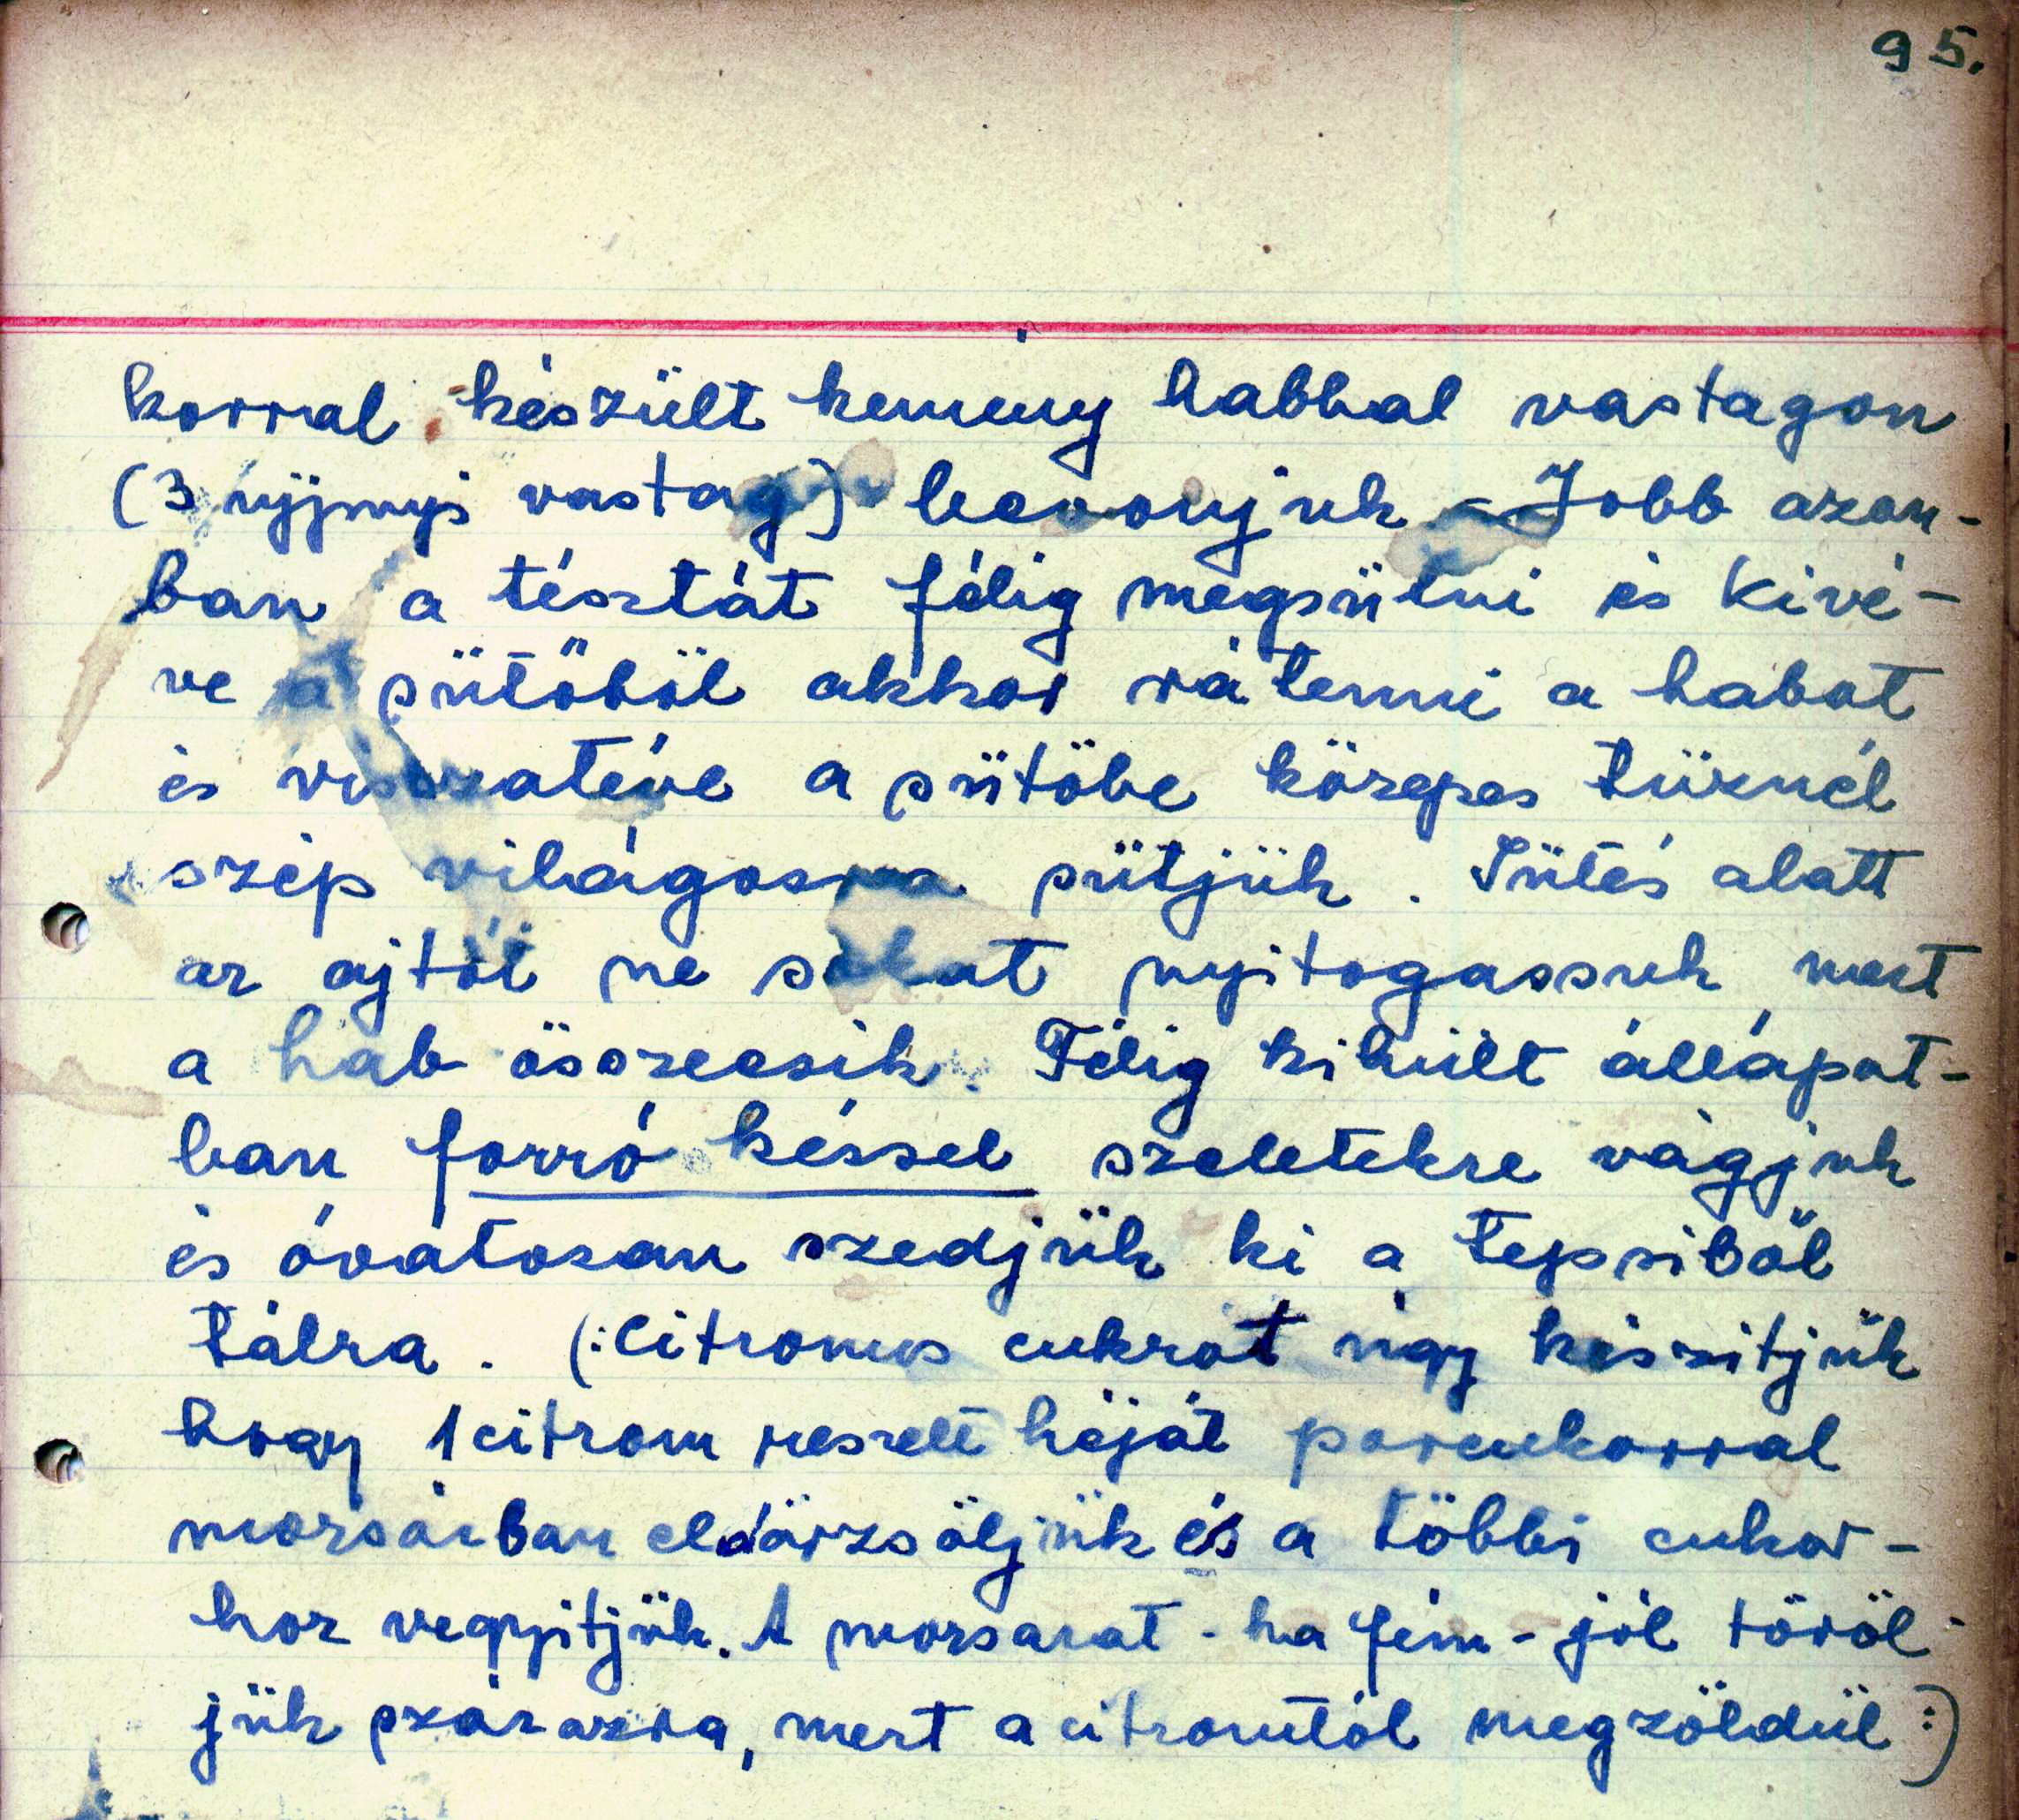 95.
korral készült kemény habbal vastagon
(3 ujjnyi vastag) bevonjuk - Jobb azon-
ban a tésztát félig megsütni és kivé-
ve a sütőböl akkor rátenni a habot
és visszatéve a sütöbe közepes tüznél
szép világosra sütjük. Sütés alatt
az ajtót ne sokat nyitogassuk, mert
a hab összeesik. Félig kihült állápot-
ban forró késsel szeletekre vágjuk
és óvatosan szedjük ki a tepsiből
tálra. (:Citromos cukrot úgy készitjük
hogy 1 citrom reszelt héját porcukorral
morsárban eldörzsöljük és a többi cukor-
hoz vegyitjük. A morsarat - ha fém - jól töröl-
jük szárazra, mert a citromtól megzöldül:)